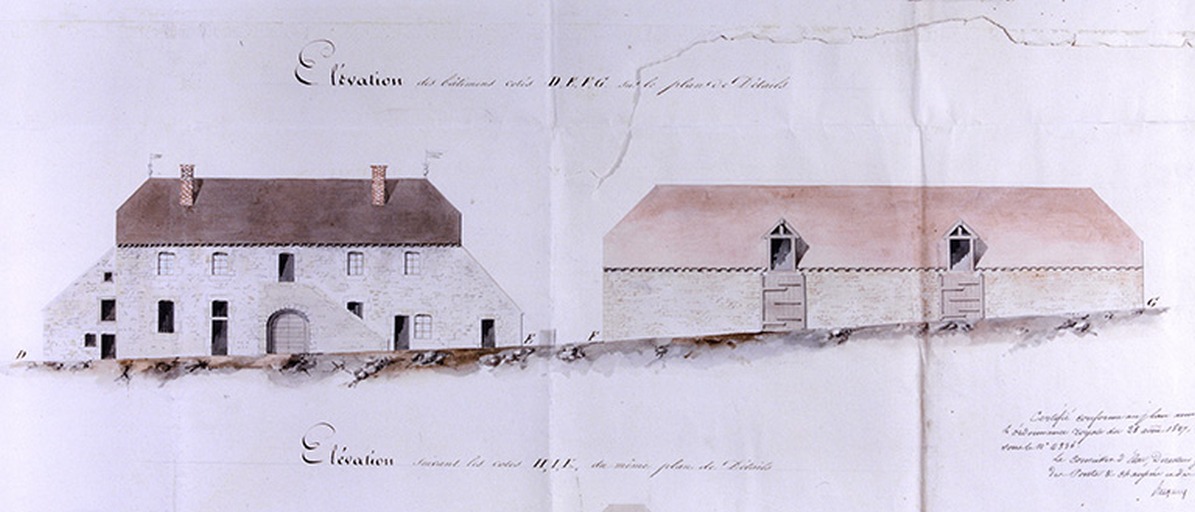 Elévation des bâtimens cotés D, E, F, G sur le plan de Détails
D
E
F
G
Elévation suivant les cotés H, I, K, du même plan de Détails
Certifié conforme au plan
ordonnance royale du 28 août 1827,
sous le N°
Le conseiller d'Etat, Directeur
des Ponts &